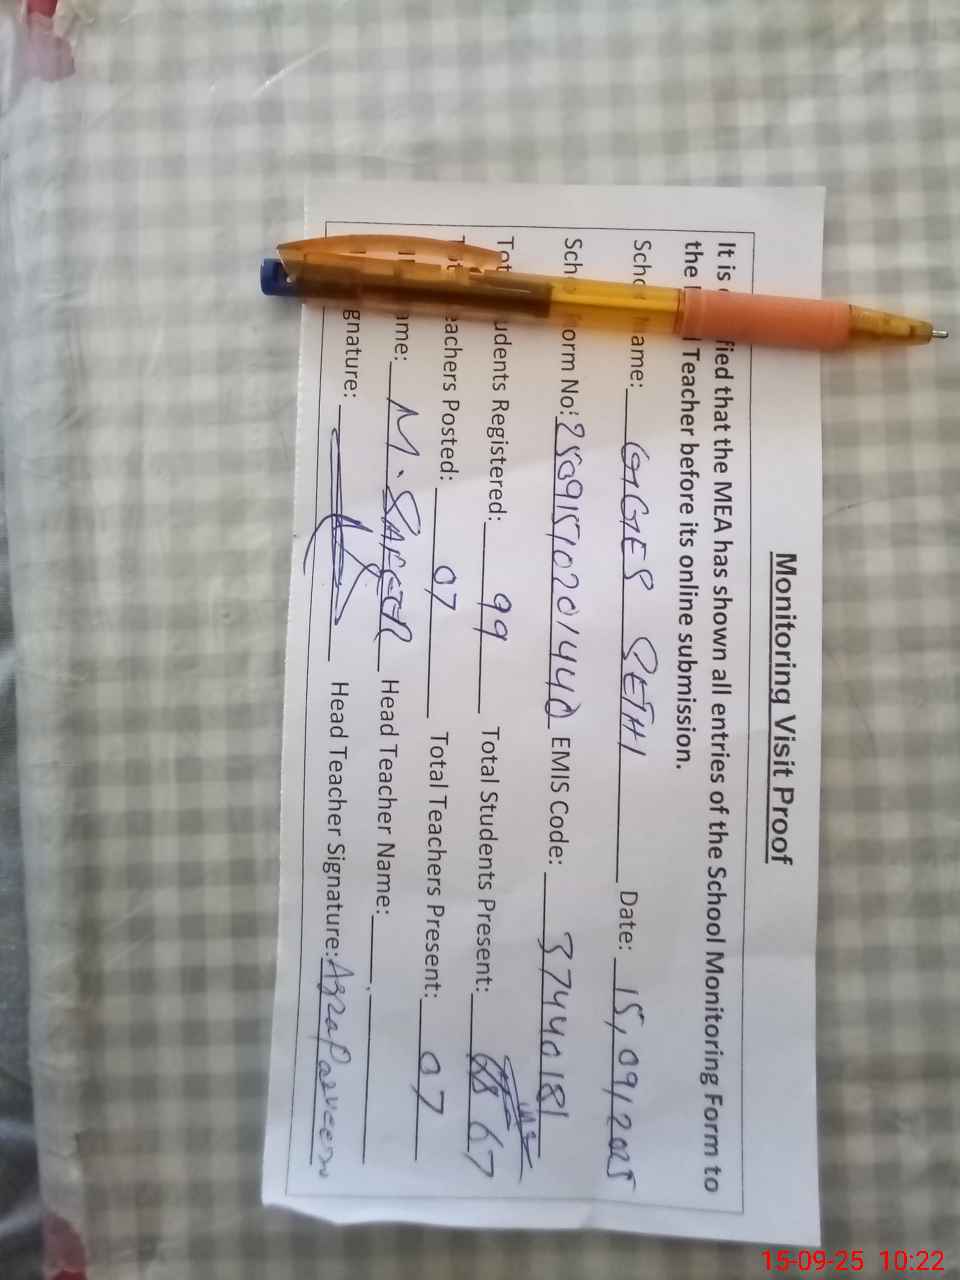 Monitoring Visit Proof
It is fied that the MEA has shown all entries of the School Monitoring Form to
the Teacher before its online submission.
Scho ame: GGES SETHI Date: 15/09/2025
Sch orm No: 25091510201440 EMIS Code: 37440181
Tot udents Registered: 99 Total Students Present: 67
eachers Posted: 07 Total Teachers Present: 07
ame: M. SAFEER Head Teacher Name:
gnature: Head Teacher Signature: Azra Parveen
15-09-25 10:22